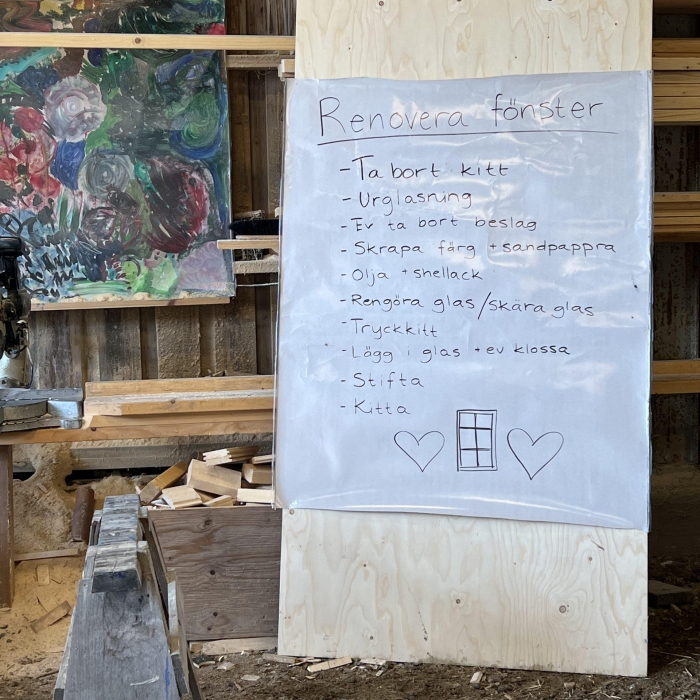 Renovera fönster
- Ta bort kitt
- Urglasning
- Ev ta bort beslag
- Skrapa färg + sandpappra
- Olja + shellack
- Rengöra glas/skära glas
- Tryckkitt
- Lägg i glas + ev klossa
- Stifta
- Kitta